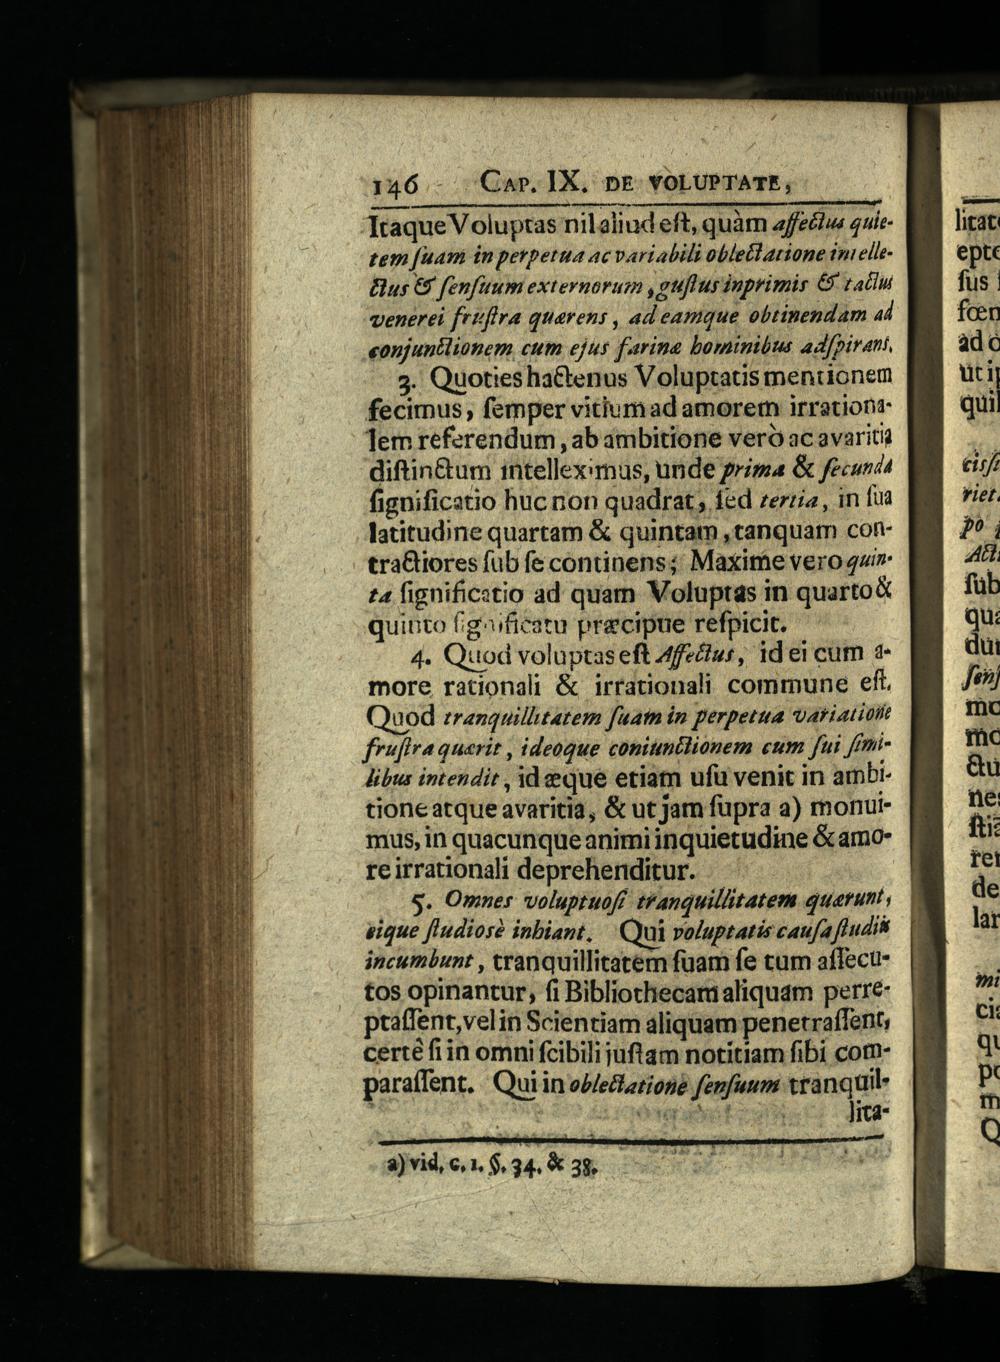 146 CAP. IX. DE VOLUPTATE,
Itaque Voluptas nil aliud eſt, quàm affectus quie-
tem ſuam in perpetua ac variabili oblectatione intelle-
ctus & ſenſuum externorum, guſtus inprimis & tactus
venerei fruſtra quærens, ad eamque obtinendam ad
conjunctionem cum ejus farinæ hominibus adſpirans.
3. Quoties hactenus Voluptatis mentionem
fecimus, ſemper vitium ad amorem irrationa-
lem referendum, ab ambitione verò ac avaritia
diſtinctum intelleximus, unde prima & ſecunda
ſignificatio huc non quadrat, ſed tertia, in ſua
latitudine quartam & quintam, tanquam con-
tractiores ſub ſe continens; Maxime vero quin-
ta ſignificatio ad quam Voluptas in quarto &
quinto ſignificatu præcipue reſpicit.
4. Quod voluptas eſt Affectus, id ei cum a-
more rationali & irrationali commune eſt.
Quod tranquillitatem ſuam in perpetua variatione
fruſtra quærit, ideoque coniunctionem cum ſui ſimi-
libus intendit, id æque etiam uſu venit in ambi-
tione atque avaritia, & ut jam ſupra a) monui-
mus, in quacunque animi inquietudine & amo-
re irrationali deprehenditur.
5. Omnes voluptuoſi tranquillitatem quærunt,
eique ſtudiosè inhiant. Qui voluptatis cauſa ſtudiis
incumbunt, tranquillitatem ſuam ſe tum aſſecu-
tos opinantur, ſi Bibliothecam aliquam perre-
ptaſſent, vel in Scientiam aliquam penetraſſent,
certè ſi in omni ſcibili juſtam notitiam ſibi com-
paraſſent. Qui in oblectatione ſenſuum tranquil-
lita-
a) vid. c. 1. §. 34. & 38.
litat
epto
ſus
fœn
ad
ut ip
quil
riet
po
ſub
qua
du
mo
mo
ctu
nes
ſtiā
rer
de
lar
mi
cia
qu
po
m
Q